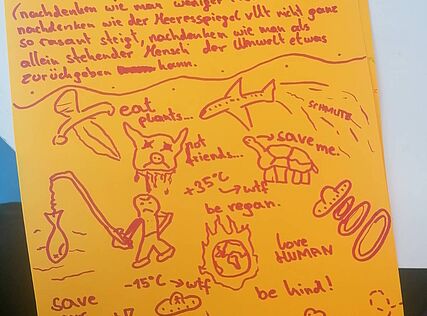 (nachdenken wie man weniger
nachdenken wie der Meeresspiegel vllt nicht ganz
so rasant steigt, nachdenken wie man als
allein stehender Mensch der Umwelt etwas
zurückgeben kann.
eat
plants...
not
friends...
SCHMUTZ
save me.
+35°C → wtf
be vegan.
-15°C → wtf
love
HUMAN
be kind!
save